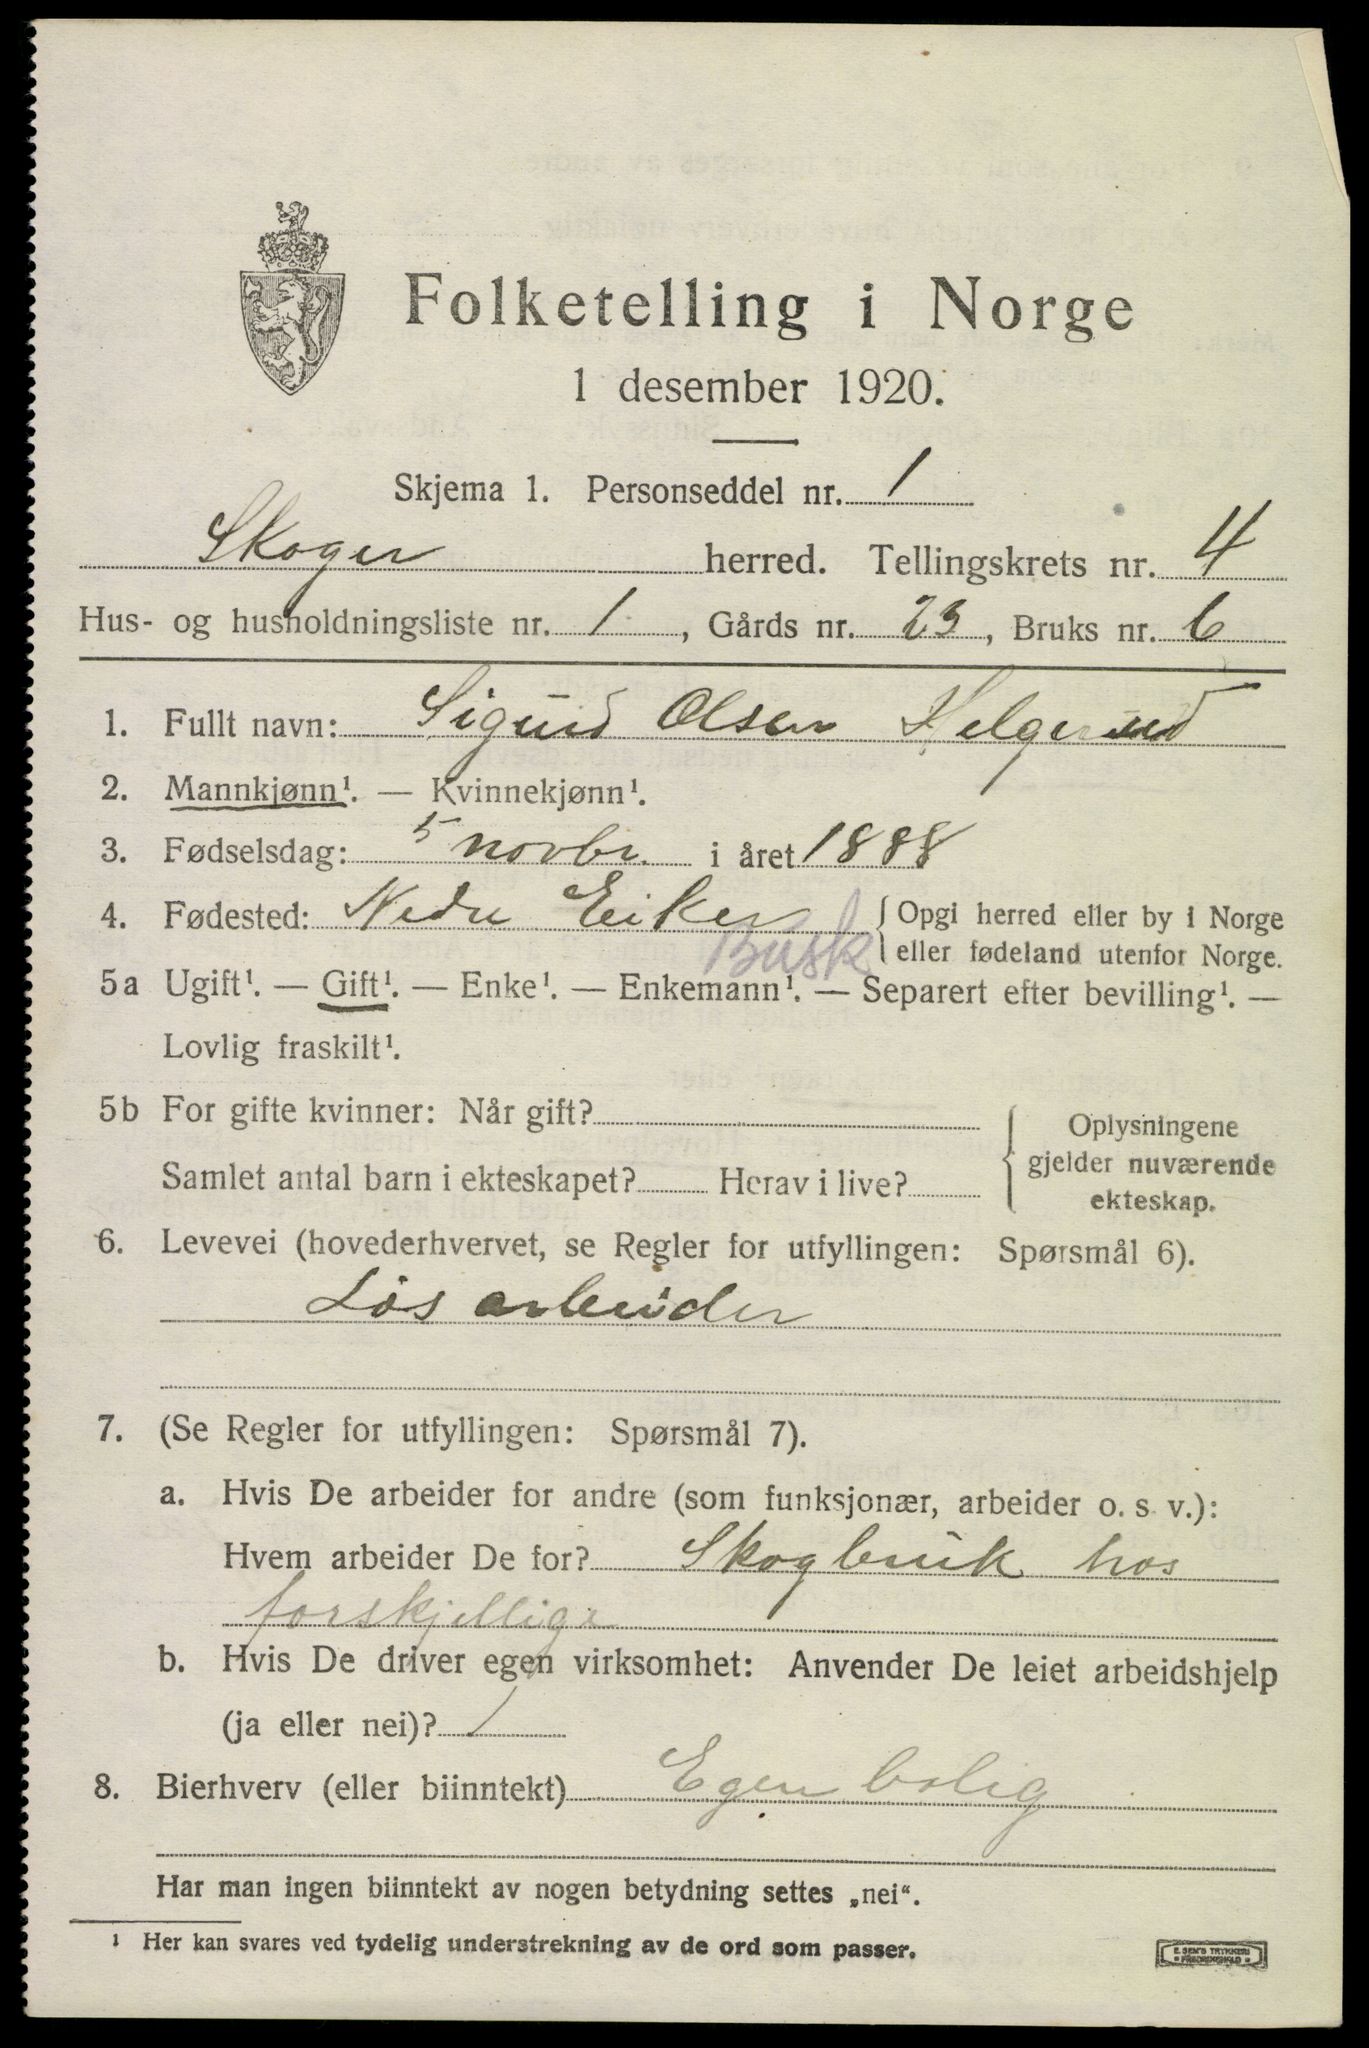 Folketelling i Norge
1 desember 1920.
Skjema 1. Personseddel nr. 1
Skoger herred. Tellingskrets nr. 4
Hus- og husholdningsliste nr. 1, Gårds nr. 23, Bruks nr. 6
1. Fullt navn: Sigurd Olsen Helgerud
2. Mannkjønn¹. — Kvinnekjønn¹.
3. Fødselsdag: 5 novbr. i året 1888
4. Fødested: Nedre Eiker { Opgi herred eller by i Norge
Busk eller fødeland utenfor Norge.
5a Ugift¹. — Gift¹. — Enke¹. — Enkemann¹. — Separert efter bevilling¹. —
Lovlig fraskilt¹.
5b For gifte kvinner: Når gift? { Oplysningene
gjelder nuværende
Samlet antal barn i ekteskapet? Herav i live? ekteskap.
6. Levevei (hovederhvervet, se Regler for utfyllingen: Spørsmål 6).
Løs arbeider
7. (Se Regler for utfyllingen: Spørsmål 7).
a. Hvis De arbeider for andre (som funksjonær, arbeider o. s. v.):
Hvem arbeider De for? Skogbruk hos
forskjellige
b. Hvis De driver egen virksomhet: Anvender De leiet arbeidshjelp
(ja eller nei)? /
8. Bierhverv (eller biinntekt) Egen bolig
Har man ingen biinntekt av nogen betydning settes „nei“.
¹ Her kan svares ved tydelig understrekning av de ord som passer.
E. SEM'S TRYKKERI
FREDRIKSHALD